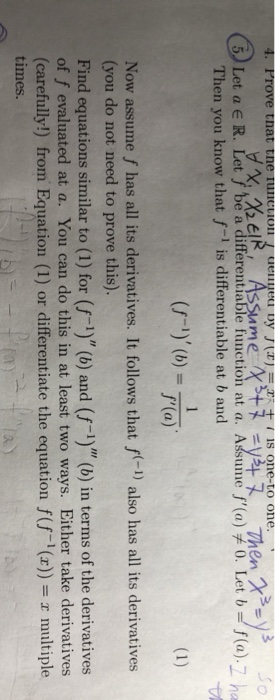 4. Prove that the function defined by f(x) = x³ + 7 is one-to-one.
∀ x₁, x₂ ∈ ℝ, Assume x³+7 = y³+7 Then x³ = y³
⑤ Let a ∈ ℝ. Let f be a differentiable function at a. Assume f′(a) ≠ 0. Let b = f(a). I
Then you know that f⁻¹ is differentiable at b and
(f⁻¹)′(b) = 1/f′(a). (1)
Now assume f has all its derivatives. It follows that f⁽⁻¹⁾ also has all its derivatives
(you do not need to prove this).
Find equations similar to (1) for (f⁻¹)″(b) and (f⁻¹)‴(b) in terms of the derivatives
of f evaluated at a. You can do this in at least two ways. Either take derivatives
(carefully!) from Equation (1) or differentiate the equation f(f⁻¹(x)) = x multiple
times.